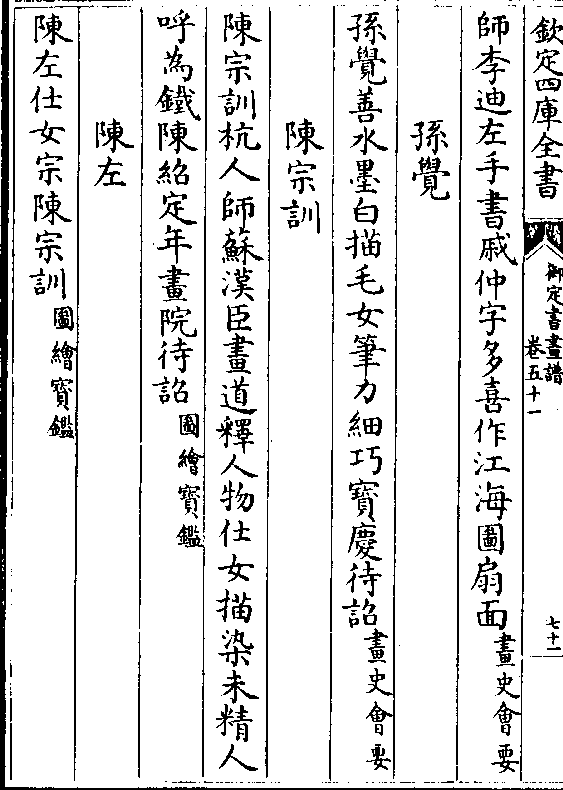 欽定四庫全書
御定書畫譜
卷五十一
七十一
師李迪左手書戚仲字多喜作江海圖扇面畫史會要
孫覺
孫覺善水墨白描毛女筆力細巧寶慶待詔畫史會要
陳宗訓
陳宗訓杭人師蘇漢臣畫道釋人物仕女描染未精人
呼為鐵陳紹定年畫院待詔圖繪寶鑑
陳左
陳左仕女宗陳宗訓圖繪寶鑑